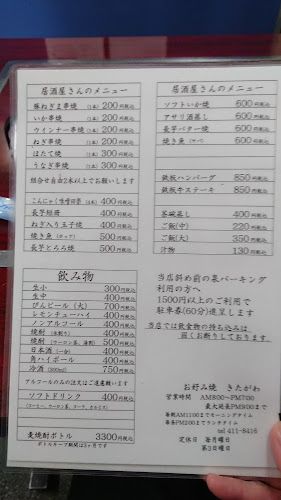 居酒屋さんのメニュー
豚ねぎま串焼 (1本) 200円税込
いか串焼 (1本) 200円税込
ウインナー串焼 (1本) 200円税込
ねぎ串焼 (1本) 150円税込
ほたて焼 (1本) 300円税込
うなぎ串焼 (1本) 300円税込
組合せ自由2本以上でお願いします
こんにゃく(味噌田楽 (2本) 400円税込
長芋短冊 400円税込
ねぎ入り玉子焼 400円税込
焼き魚 400円税込
長芋とろろ焼 500円税込
飲み物
生小 300円税込
生中 400円税込
びんビール (大) 700円税込
レモンチューハイ 400円税込
ノンアルコール 400円税込
焼酎 (水割り) 400円税込
焼酎 (ウーロン茶、湯割) 500円税込
日本酒 (一合) 400円税込
角ハイボール 400円税込
冷酒 (300ml) 750円税込
アルコールのみの注文はご遠慮願います
ソフトドリンク 400円税込
(コーヒー、ウーロン茶、コーラ、カルピス)
麦焼酎ボトル 3300円税込
ボトルキープ期間は3ヶ月です
居酒屋さんのメニュー
ソフトいか焼 600円税込
アサリ酒蒸し 600円税込
長芋バター焼 600円税込
焼き魚 600円税込
鉄板ハンバーグ 850円税込
鉄板牛ステーキ 850円税込
茶碗蒸し 400円税込
ご飯(中) 220円税込
ご飯(大) 350円税込
汁物 130円税込
当店斜め前の泉パーキング
利用の方へ
1500円以上のご利用で
駐車券(60分)進呈します
当店では飲食物の持ち込みは
固くお断りしております
お好み焼 きたがわ
営業時間 AM8:00～PM7:00
最大延長PM9:00まで
毎朝AM11:00までモーニングタイム
毎昼PM2:00までランチタイム
tel 411-8416
定休日 毎月曜日
第3日曜日